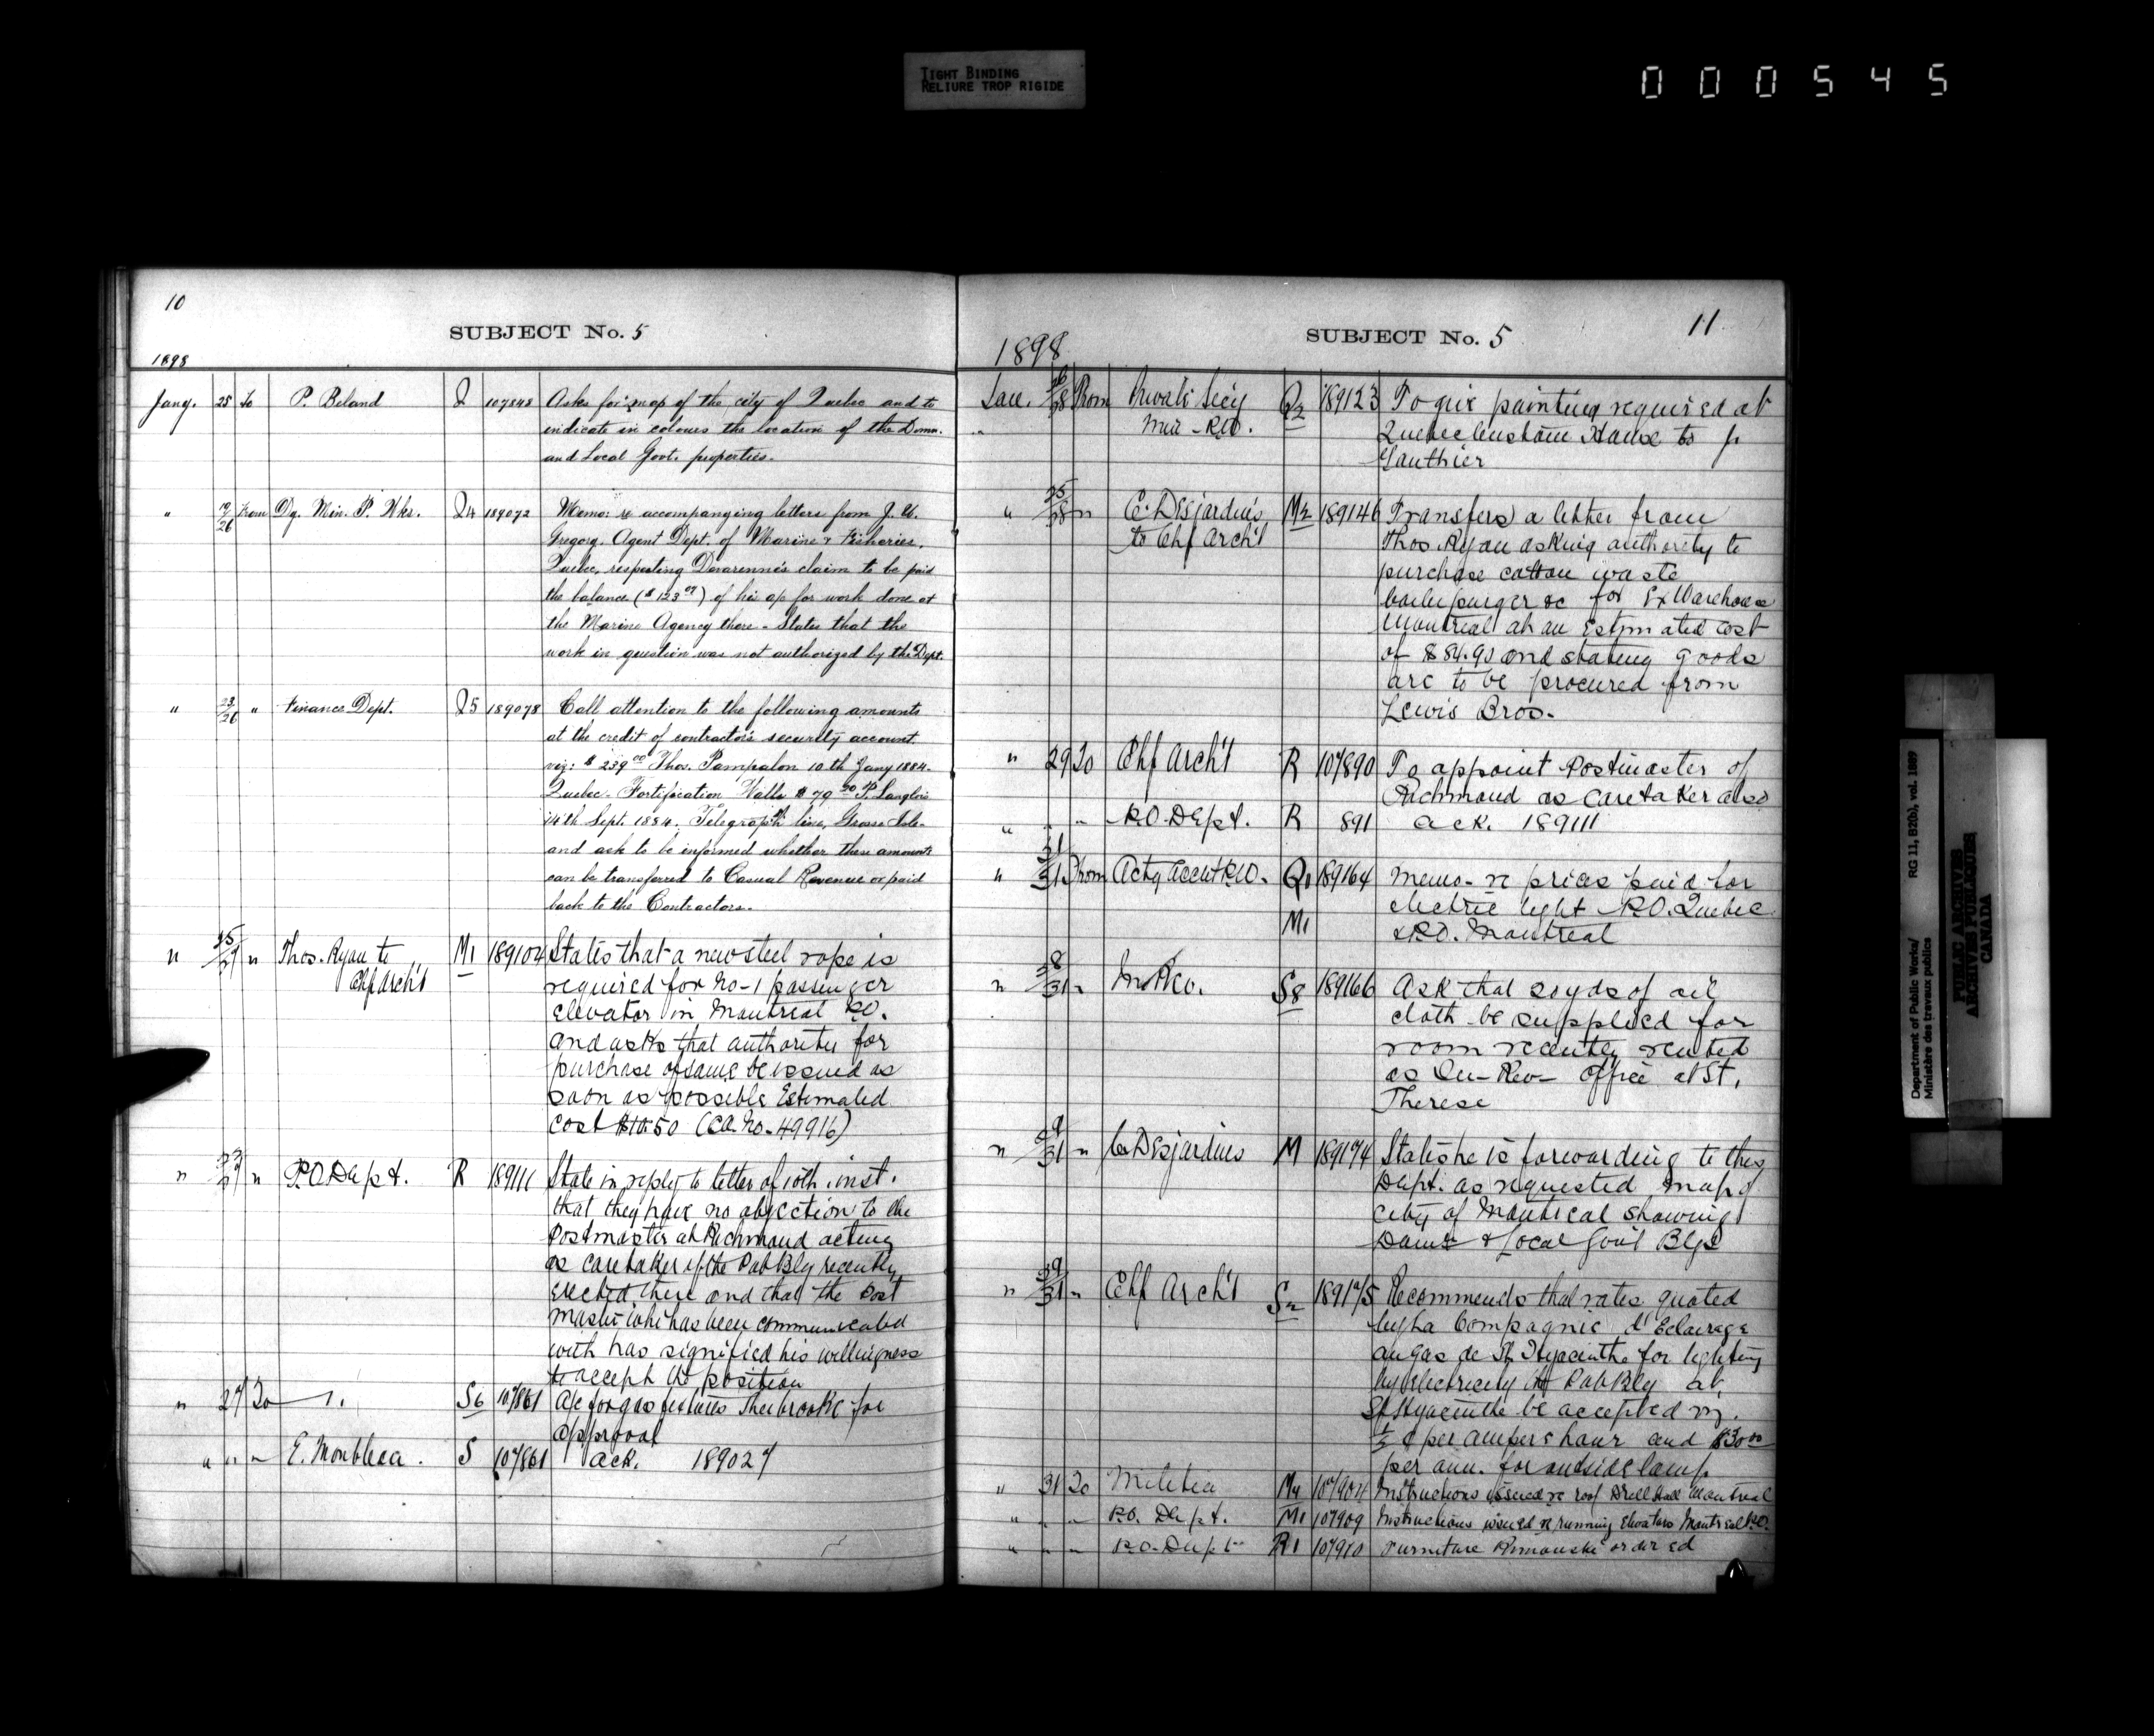 TIGHT BINDING
RELIURE TROP RIGIDE
000545
10
SUBJECT No. 5
1898
Jany. 25 To P. Beland Q 107848 Asks for map of the city of Quebec and to
indicate in colours the location of the Domn.
and Local Govt. properties.
" 19/26 From Dy. Min. P. Wks. Q4 189072 Memo: & accompanging letters from J. U.
Gregory, Agent Dept. of Marine & Fisheries,
Quebec, respecting Devarenne's claim to be paid
the balance ($123.07) of his a/c for work done at
the Marine Agency there - States that the
work in question was not authorized by the Dept.
" 23/26 " Finance Dept. Q5 189078 Call attention to the following amounts
at the credit of contractor's security account.
viz: $239.00 Thos. Pampalon 10th Jany 1884.
Quebec - Fortification Walls $79.20 P. Langlois
14th Sept. 1884. Telegraph line, Grosse Isle -
and ask to be informed whether these amounts
can be transferred to Casual Revenue or paid
back to the Contractors.
" 25/27 " Thos. Ryan to M1 189104 States that a new steel rope is
Chf Arch't required for No-1 passenger
elevator in Montreal P.O.
and asks that authority for
purchase of same be issued as
soon as possible Estimated
cost $10.50 (CA. No. 49916)
" 27 " P.O Dept. R 189111 State in reply to letter of 10th inst.
that they have no objection to the
Postmaster at Richmond acting
as caretaker of the Pub Bly recently
Erected there and that the Post
Master who has been communicated
with has signified his willingness
to accept the position
" 27 To " S6 107861 A/c for gas fixtures Sherbrooke for
approval
" " " E. S 107861 ack. 189027
11
SUBJECT No. 5
1898
Jan. 26/28 From Private Sec'y Q2 189123 To give painting required at
Min - P.W. Quebec Custom House to J.
Gauthier
" 25/28 " C. Desjardins M2 189146 Transfers a letter from
to Chf Arch't Thos. Ryan asking authority to
purchase cotton waste
boiler purger &c for Ex Warehouse
Montreal at an Estimated cost
of $84.90 and stating goods
are to be procured from
Lewis Bros.
" 29 To Chf Arch't R 107890 To appoint Postmaster of
Richmond as caretaker also
" " " P.O. Dept. R 891 ack. 189111
" 31/31 From Actg Acc't P.W. Q1 189164 Memo - re prices paid for
M1 electric light P.O. Quebec
& P.O. Montreal
" 28/31 " In Rev. S8 189166 Ask that 20 yds of oil
cloth be supplied for
room recently rented
as In - Rev - Office at St.
Therese
" 29/31 " C. Desjardins M 189174 States he is forwarding to this
Dept. as requested map of
city of Montreal showing
Domn & Local Gov't Blgs
" 29/31 " Chf Arch't S2 189175 Recommends that rates quoted
by La Compagnie d'Eclairage
au gas de St. Hyacinthe for lighting
by electricity the Pub Bly at
St Hyacinthe be accepted viz.
½ ¢ per ampere hour and $30.00
per ann. for outside lamp
" 31 To Militia M4 107904 Instructions issued re roof Drill Hall Montreal
" " " P.O. Dept. M1 107909 Instructions issued re running Elevators Montreal P.O.
" " " P.O. Dept R1 107910 Furniture Rimouski ordered
Department of Public Works/ RG 11, B2(b), vol. 1889
Ministère des travaux publics
PUBLIC ARCHIVES
ARCHIVES PUBLIQUES
CANADA